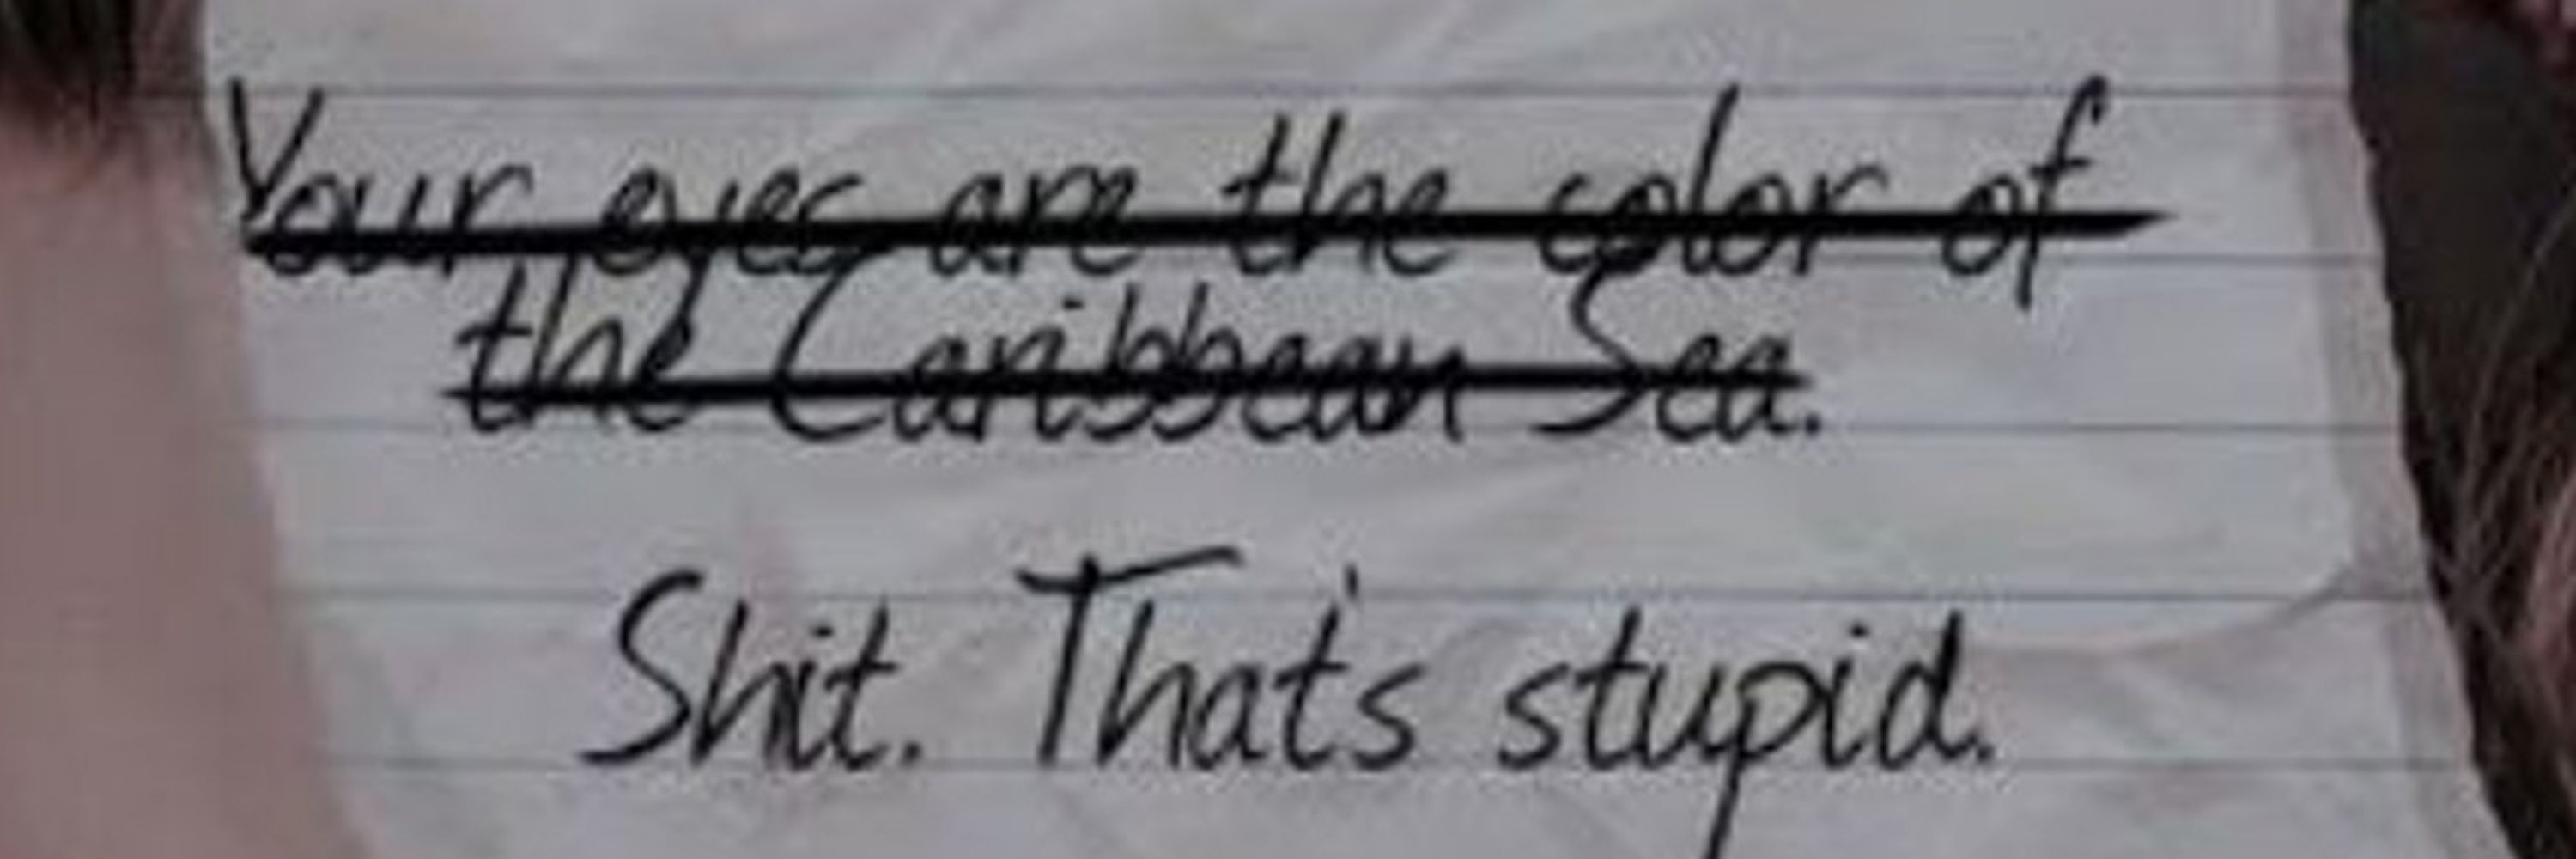 Your eyes are the color of
the Caribbean Sea.
Shit. That's stupid.